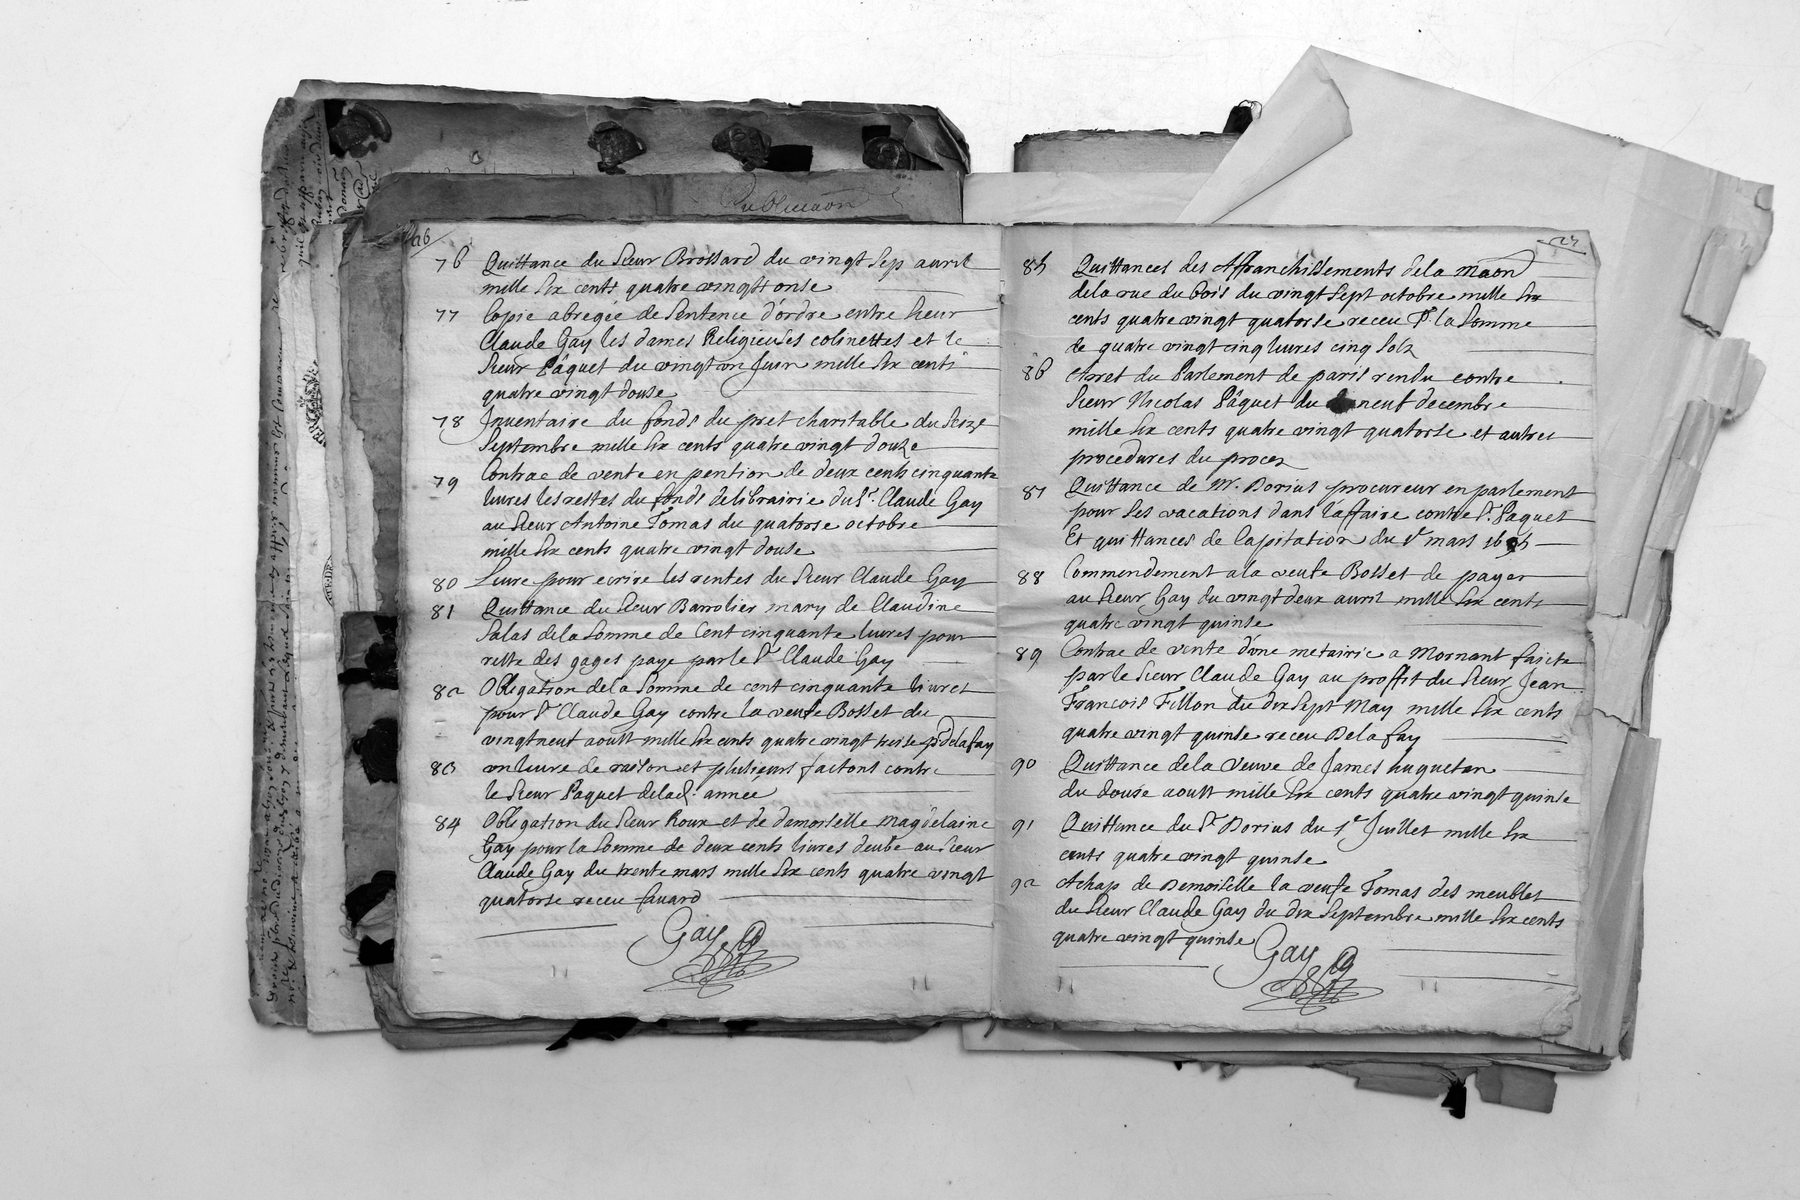 Publication
26
76 Quittance du sieur Brossard du vingt sep auril
mille six cents quatre vingtt onse
77 Copie abregée de Sentence d'ordre entre sieur
Claude Gay les dames Religieuses colinettes et le
sieur Pâquet du vingt un Juin mille six cents
quatre vingt douse
78 Inuentaire du fonds du pret charitable du seize
Septembre mille six cents quatre vingt douze
79 Contrac de vente en pention de deux cents cinquante
liures les restes du fonds de librairie du Sr. Claude Gay
au sieur Antoine Tomas du quatorse octobre
mille six cents quatre vingt douse
80 Liure pour ecrire les rentes du sieur Claude Gay
81 Quittance du sieur Barrolier mary de Claudine
Salas de la somme de Cent cinquante liures pour
reste des gages paye par le Sr Claude Gay
82 Obligation de la somme de cent cinquante liures
pour Sr Claude Gay contre la veufe Bosset du
vingt neuf aoust mille six cents quatre vingt treise pr delafay
83 un liure de raison et plusieurs factons contre
le sieur Paquet delad: année
84 Obligation du sieur Roux et de demoiselle magdelaine
Gay pour la somme de deux cents liures deube au sieur
Claude Gay du trente mars mille six cents quatre vingt
quatorse receu fauard
Gay
27
85 Quittances des Affranchissements dela maon
dela rue du bois du vingt sept octobre mille six
cents quatre vingt quatorse receu Pr. la somme
de quatre vingt cinq liures cinq solz
86 Arret du Parlement de paris rendu contre
sieur Nicolas Pâquet du neuf decembre
mille six cents quatre vingt quatorse et autres
procedures du procez
87 Quittance de Mr. Dorius procureur en parlement
pour ses vacations dans l'affaire contre Sr. Paquet
Et quittances de Capitation du 1r mars 1695
88 Commendement a la veufe Bosset de payer
au sieur Gay du vingt deux auril mille six cents
quatre vingt quinse
89 Contrac de vente d'une metairie a Mornant faicte
par le sieur Claude Gay au proffit du sieur Jean
Francois Fillon du dix sept May mille six cents
quatre vingt quinse receu Delafay
90 Quittance dela Veuve de James huguetan
du douse aoust mille six cents quatre vingt quinse
91 Quittance du Sr Dorius du 1er Juillet mille six
cents quatre vingt quinse
92 Achap de Demoiselle la veufe Tomas des meubles
du sieur Claude Gay du dix septembre mille six cents
quatre vingt quinse
Gay